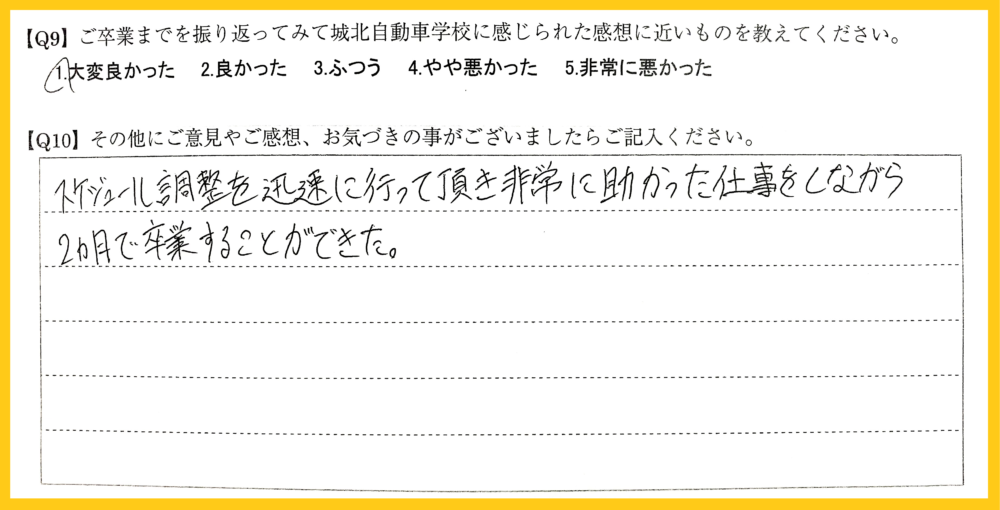 【Q9】ご卒業までを振り返ってみて城北自動車学校に感じられた感想に近いものを教えてください。
1.大変良かった 2.良かった 3.ふつう 4.やや悪かった 5.非常に悪かった
【Q10】その他にご意見やご感想、お気づきの事がございましたらご記入ください。
スケジュール調整を迅速に行って頂き非常に助かった仕事をしながら
2ヵ月で卒業することができた。